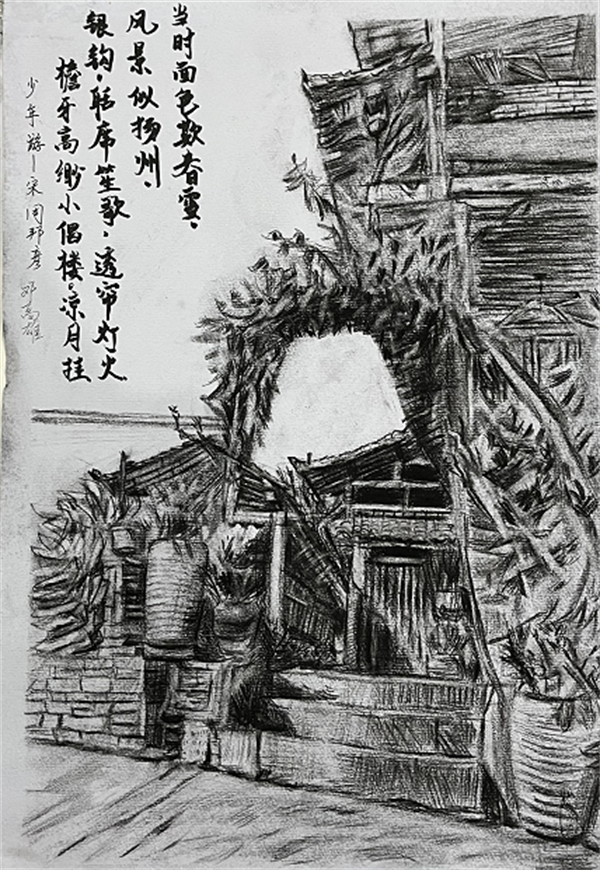 少年游—宋 周邦彦 邓高雄
檐牙高缈小倡楼。凉月挂
银钩。聒席笙歌,透帘灯火
风景似扬州、
当时面色欺春雪、